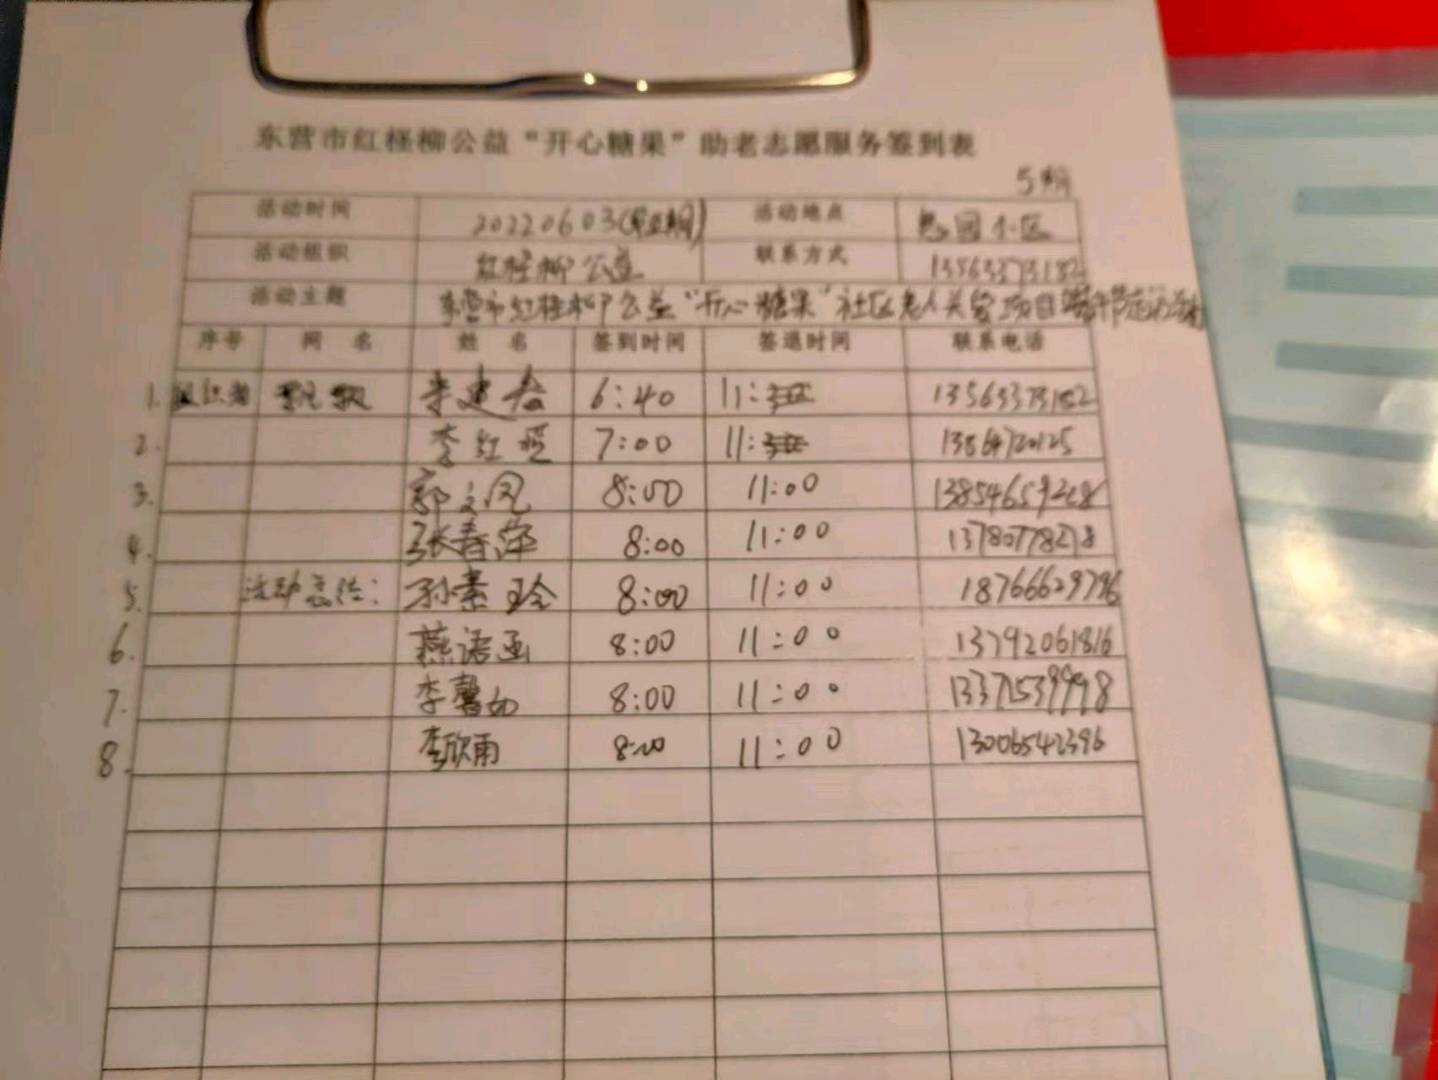 东营市红柽柳公益“开心糖果”助老志愿服务签到表
5期
活动时间 20220603 活动地点 小区
活动组织 红柽柳公益 联系方式 13563373182
活动主题 东营市红柽柳公益“开心糖果”社区老人关爱项目端午节
序号 网名 姓名 签到时间 签退时间 联系电话
1. 组织者 飘飘 李建春 6:40 11: 13563373182
2. 李红 7:00 11:
3. 郭文凤 8:00 11:00
4. 张春萍 8:00 11:00 13780778278
5. 活动总结: 孙素玲 8:00 11:00 18766629796
6. 燕语函 8:00 11:00 13792061816
7. 李馨如 8:00 11:00 13371539998
8. 李欣雨 8:00 11:00 13006542396